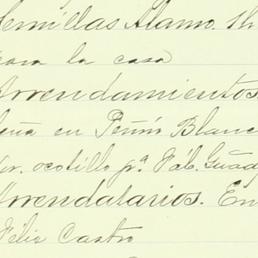 Semillas Alamo. 1h
para la casa
Arrendamientos.
Leña en Peñón Blanc
Por. ocotillo pª Fáb. Guad
Arrendatarios. En
Félix Castro